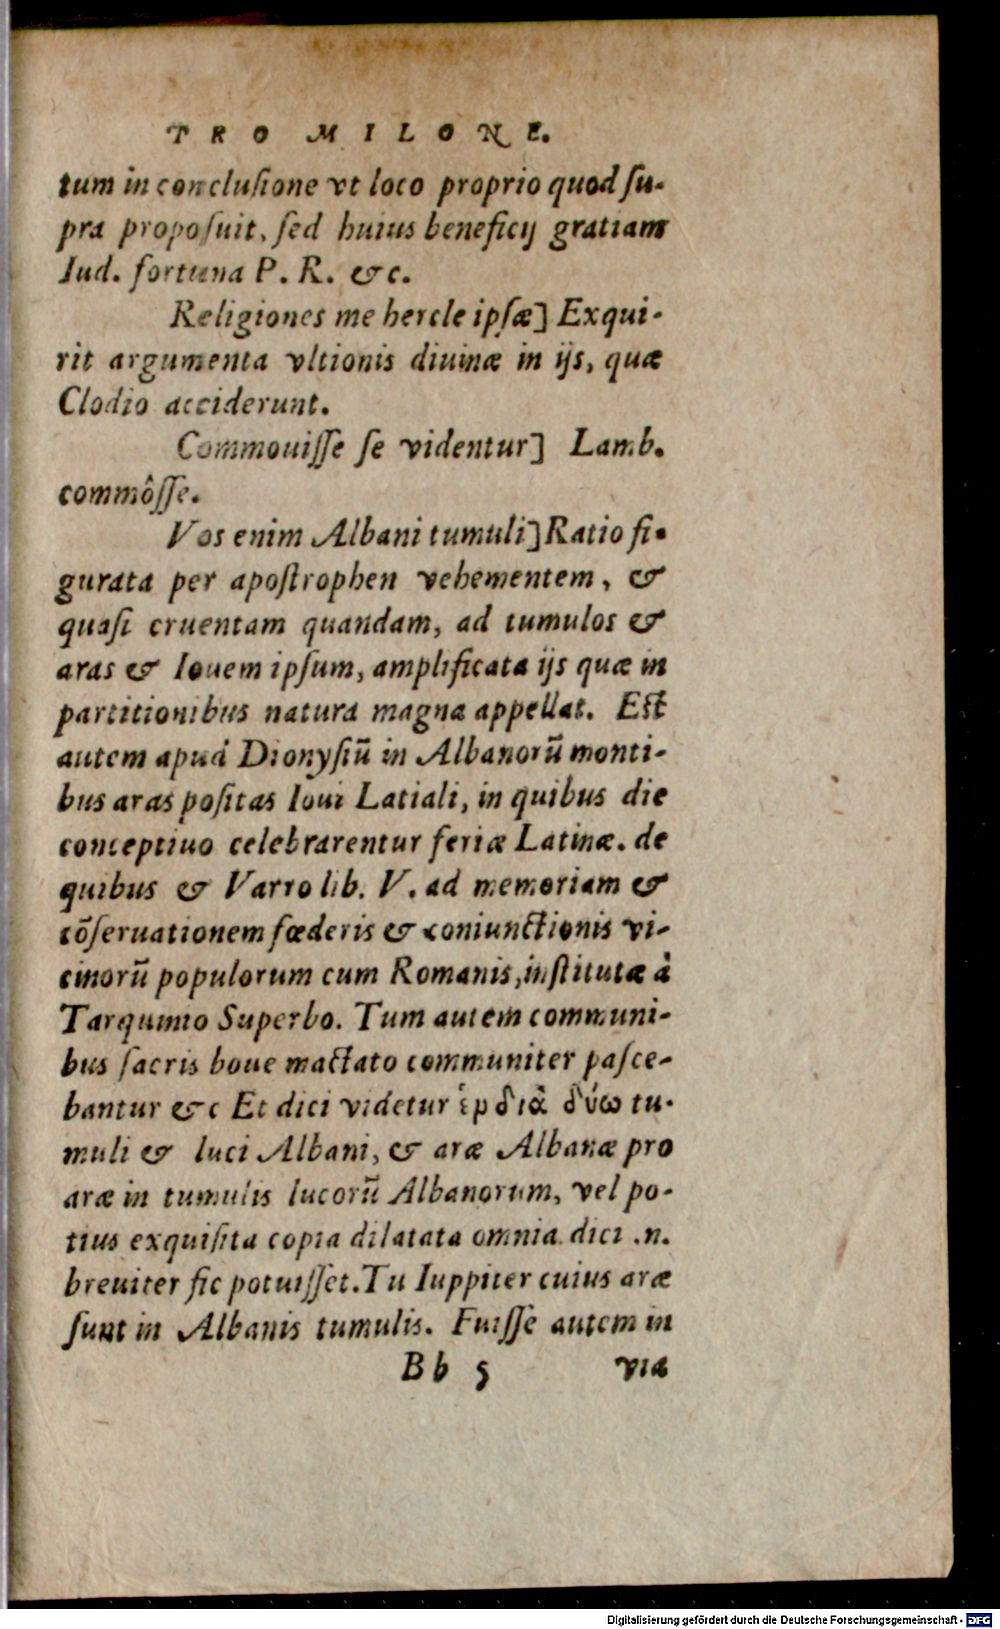 PRO MILONE.
tum in conclusione vt loco proprio quod su-
pra proposuit, sed huius beneficij gratiam
Iud. fortuna P. R. &c.
Religiones me hercle ipsæ] Exqui-
rit argumenta vltionis diuinæ in ijs, quæ
Clodio acciderunt.
Commouisse se videntur] Lamb.
commôsse.
Vos enim Albani tumuli] Ratio fi-
gurata per apostrophen vehementem, &
quasi cruentam quandam, ad tumulos &
aras & Iouem ipsum, amplificata ijs quæ in
partitionibus natura magna appellat. Est
autem apud Dionysiū in Albanorū monti-
bus aras positas Ioui Latiali, in quibus die
conceptiuo celebrarentur feriæ Latinæ. de
quibus & Varro lib. V. ad memoriam &
cōseruationem fœderis & coniunctionis vi-
cinorū populorum cum Romanis, institutæ à
Tarquinio Superbo. Tum autem communi-
bus sacris boue mactato communiter pasce-
bantur &c Et dici videtur διὰ δύω tu-
muli & luci Albani, & aræ Albanæ pro
aræ in tumulis lucorū Albanorum, vel po-
tius exquisita copia dilatata omnia. dici .n.
breuiter sic potuisset. Tu Iuppiter cuius aræ
sunt in Albanis tumulis. Fuisse autem in
Bb 5 via
Digitalisierung gefördert durch die Deutsche Forschungsgemeinschaft - DFG